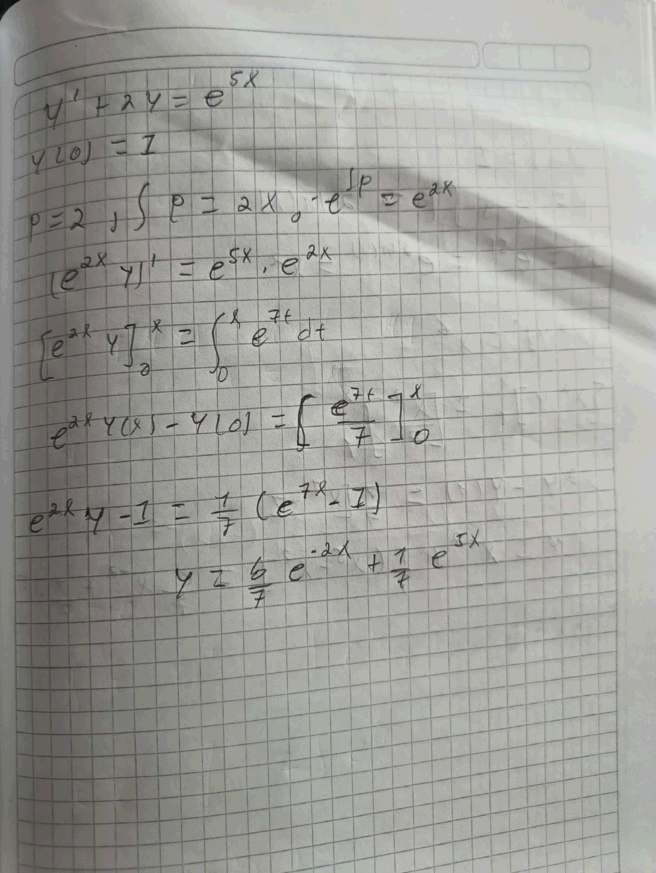 y' + 2y = e^{5x}
y(0) = 1
p = 2, ∫ p = 2x, e^{∫p} = e^{2x}
(e^{2x} y)' = e^{5x} · e^{2x}
[e^{2x} y]_0^x = ∫_0^x e^{7t} dt
e^{2x} y(x) - y(0) = [e^{7t}/7]_0^x
e^{2x} y - 1 = 1/7 (e^{7x} - 1)
y = 6/7 e^{-2x} + 1/7 e^{5x}